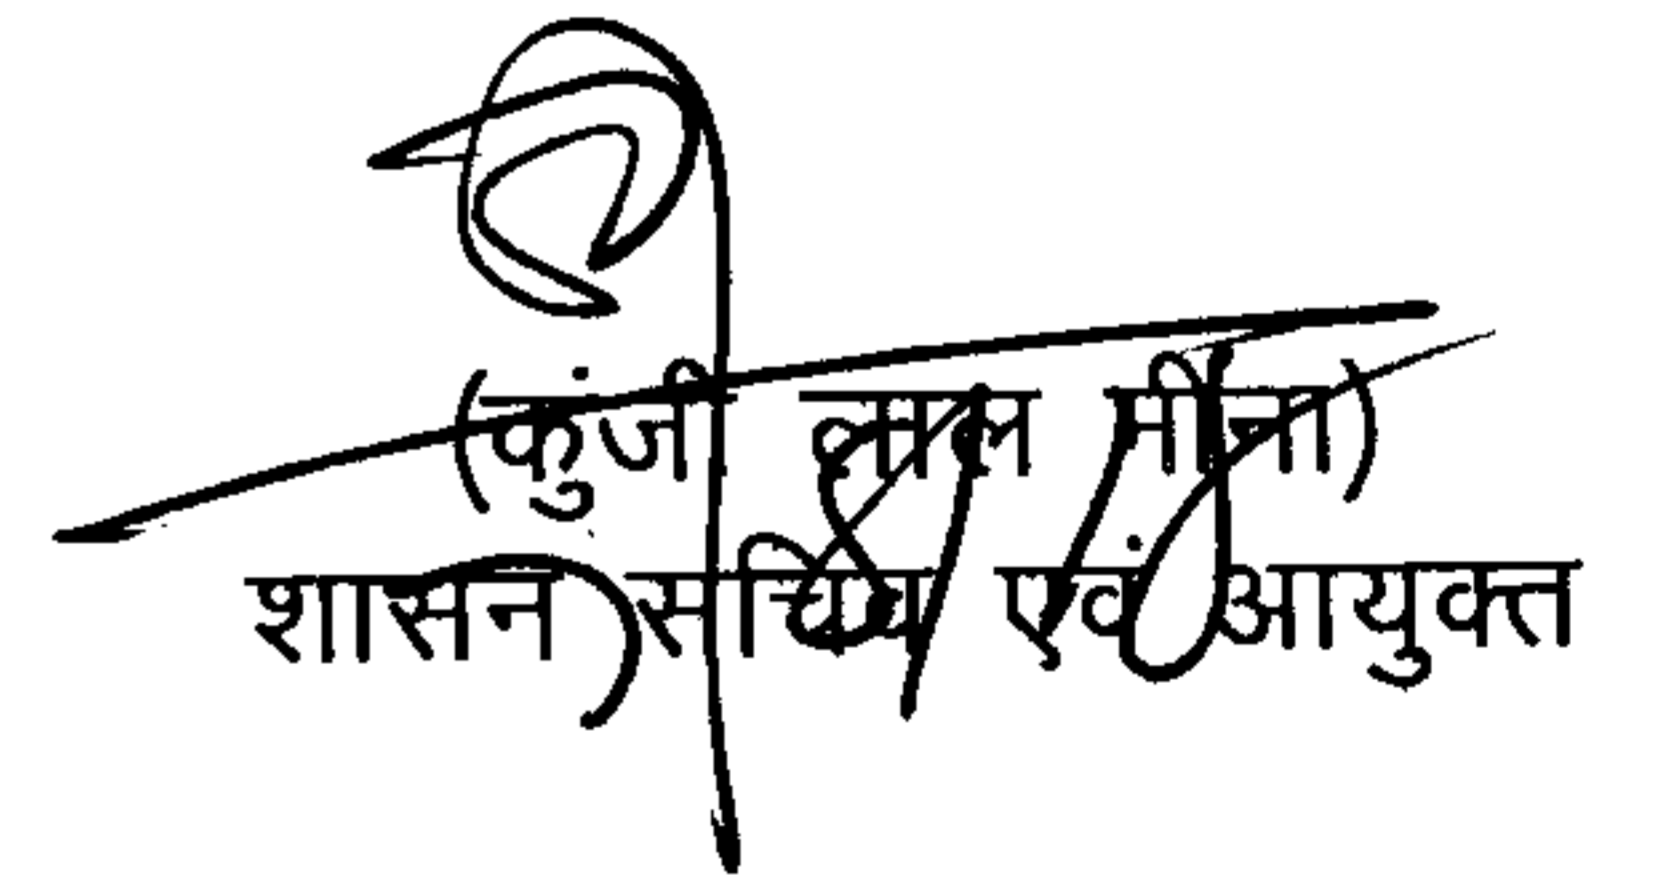 (कुंजी लाल मीना)
शासन सचिव एवं आयुक्त